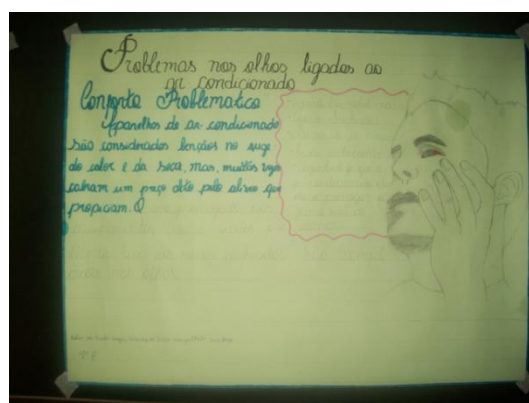 Problemas nos olhos ligados ao
ar condicionado
Conforto Problematico
Aparelhos de ar condicionado
são considerados bençãos no auge
do calor e da seca, mas, muitas vezes
cobram um preço alto pelo alivio que
propiciam.